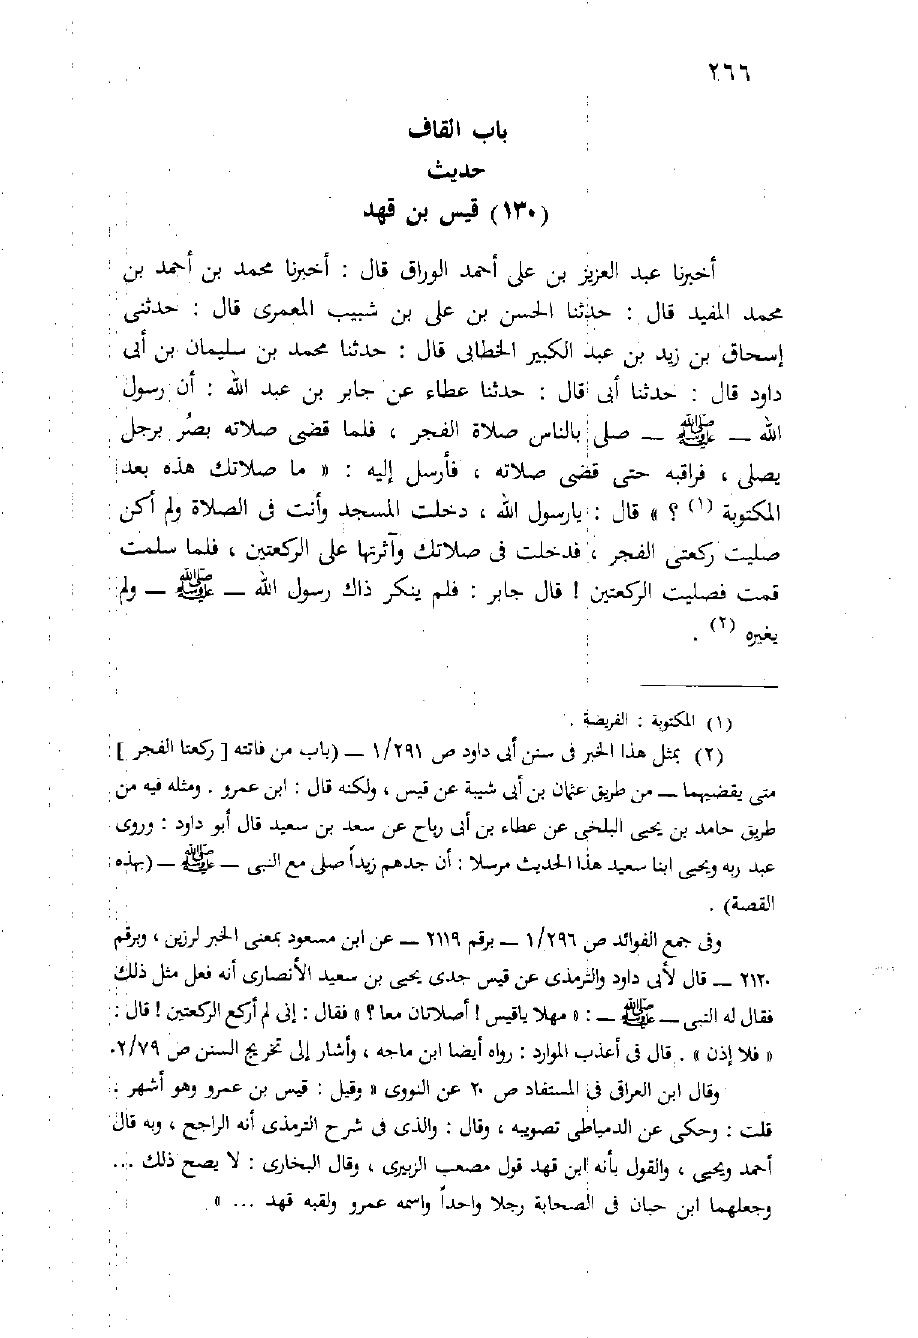 ٢٦٦
باب القاف
حديث
(١٣٠) قيس بن قهد
أخبرنا عبد العزيز بن على أحمد الوراق قال : أخبرنا محمد بن أحمد بن
محمد المفيد قال : حدثنا الحسن بن على بن شبيب المعمرى قال : حدثنى
إسحاق بن زيد بن عبد الكبير الخطابى قال : حدثنا محمد بن سليمان بن أبى
داود قال : حدثنا أبى قال : حدثنا عطاء عن جابر بن عبد الله : أن رسول
الله ــ ﷺ ــ صلى بالناس صلاة الفجر ، فلما قضى صلاته بصُر برجل
يصلى ، فراقبه حتى قضى صلاته ، فأرسل إليه : « ما صلاتك هذه بعد
المكتوبة (١) ؟ » قال : يارسول الله ، دخلت المسجد وأنت فى الصلاة ولم أكن
صليت ركعتى الفجر ، فدخلت فى صلاتك وآثرتها على الركعتين ، فلما سلمت
قمت فصليت الركعتين ! قال جابر : فلم ينكر ذاك رسول الله ــ ﷺ ــ ولم
يغيره (٢) .
(١) المكتوبة : الفريضة .
(٢) بمثل هذا الخبر فى سنن أبى داود ص ١/٢٩١ ــ (باب من فاتته [ ركعتا الفجر ]
متى يقضيهما ــ من طريق عثمان بن أبى شيبة عن قيس ، ولكنه قال : ابن عمرو . ومثله فيه من
طريق حامد بن يحيى البلخى عن عطاء بن أبى رباح عن سعد بن سعيد قال أبو داود : وروى
عبد ربه ويحيى ابنا سعيد هذا الحديث مرسلا : أن جدهم زيداً صلى مع النبى ــ ﷺ ــ (بهذه
القصة) .
وفى جمع الفوائد ص ١/٢٩٦ ــ برقم ٢١١٩ ــ عن ابن مسعود بمعنى الخبر لرزين ، وبرقم
٢١٢٠ ــ قال لأبى داود والترمذى عن قيس جدى يحيى بن سعيد الأنصارى أنه فعل مثل ذلك
فقال له النبى ــ ﷺ ــ : « مهلا ياقيس ! أصلاتان معا ؟ » فقال : إنى لم أركع الركعتين ! قال :
« فلا إذن » . قال فى أعذب الموارد : رواه أيضا ابن ماجه ، وأشار إلى تخريج السنن ص ٢/٧٩.
وقال ابن العراقى فى المستفاد ص ٢٠ عن النووى « وقيل : قيس بن عمرو وهو أشهر .
قلت : وحكى عن الدمياطى تصويبه ، وقال : والذى فى شرح الترمذى أنه الراجح ، وبه قال
أحمد ويحيى ، والقول بأنه ابن قهد قول مصعب الزبيرى ، وقال البخارى : لا يصح ذلك ...
وجعلهما ابن حبان فى الصحابة رجلا واحداً واسمه عمرو ولقبه قهد ... » .